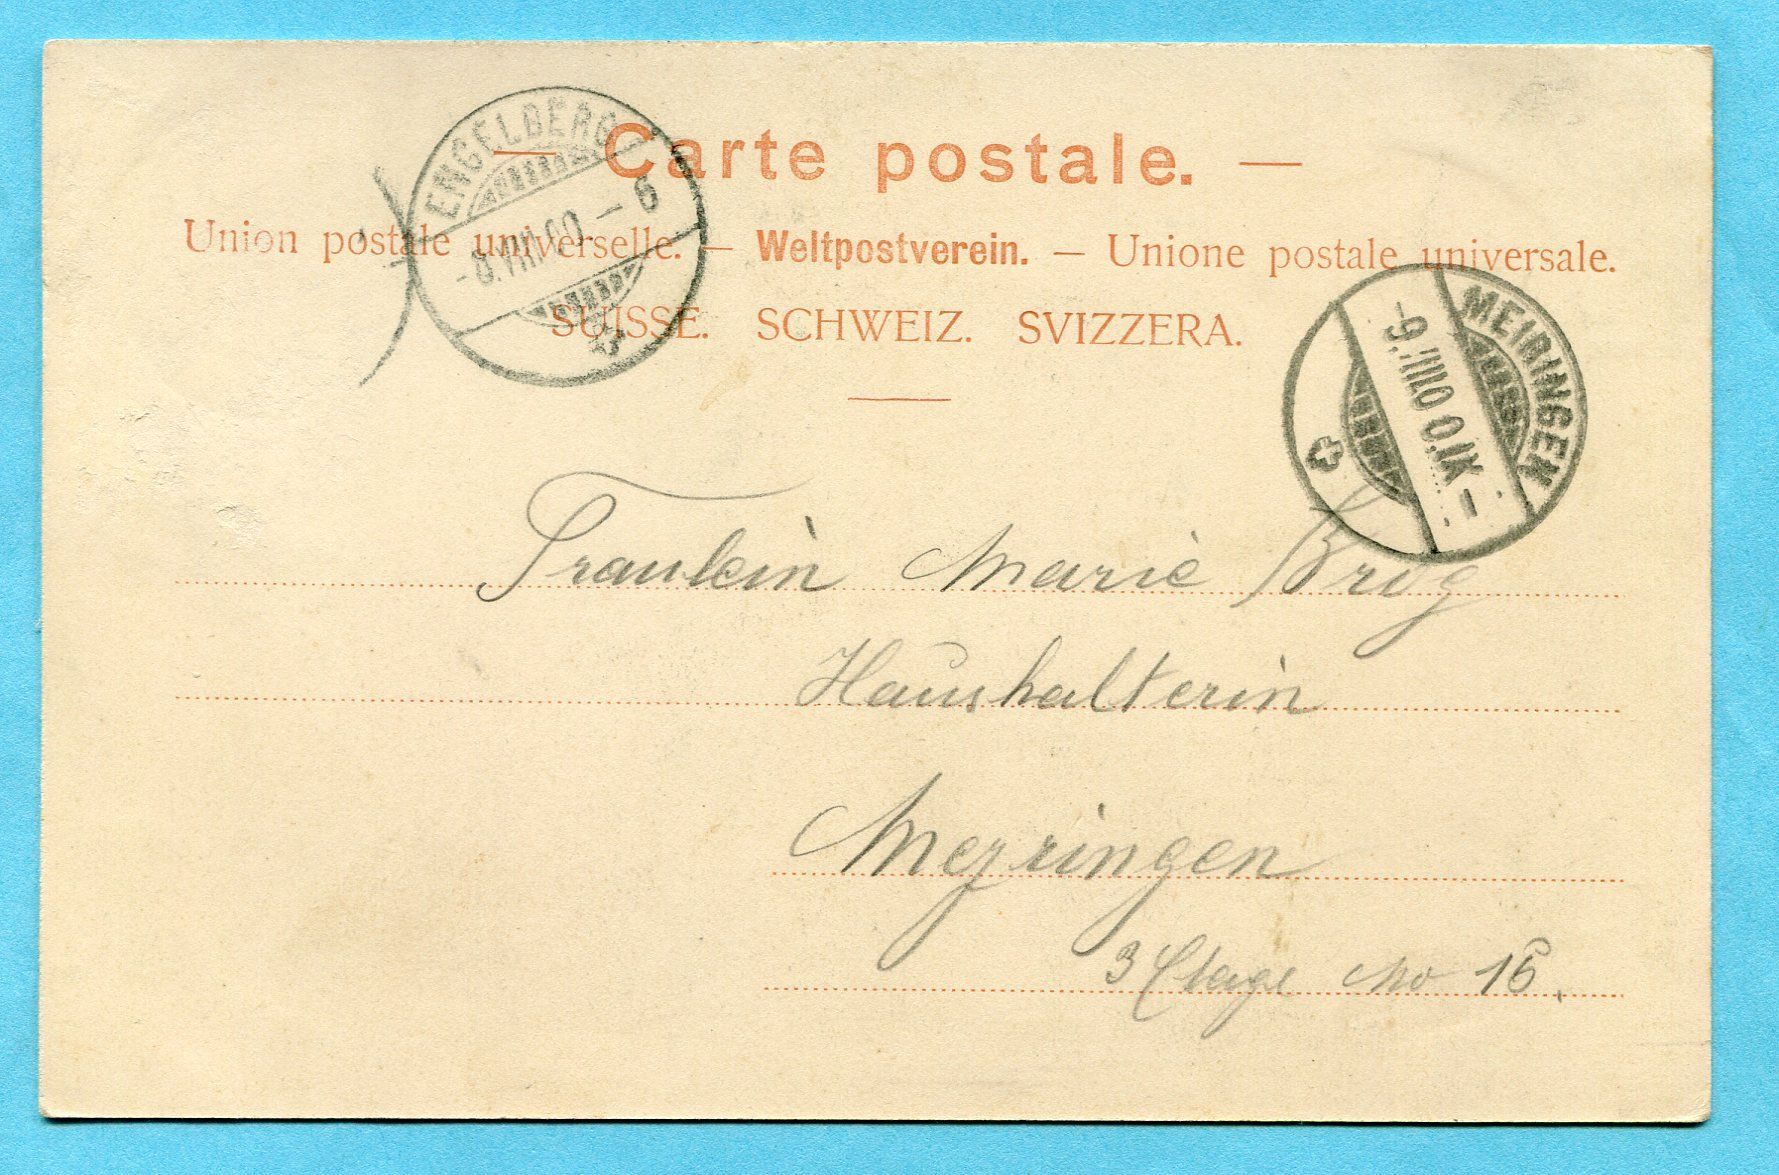 — Carte postale. —
Union postale universelle. — Weltpostverein. — Unione postale universale.
SUISSE. SCHWEIZ. SVIZZERA.
ENGELBERG
-8.VIII.00 — 6
MEIRINGEN
-9.VIII.00.IX-
Fraulein Marie Brug
Haushalterin
Meyringen
3 Etage No 15.